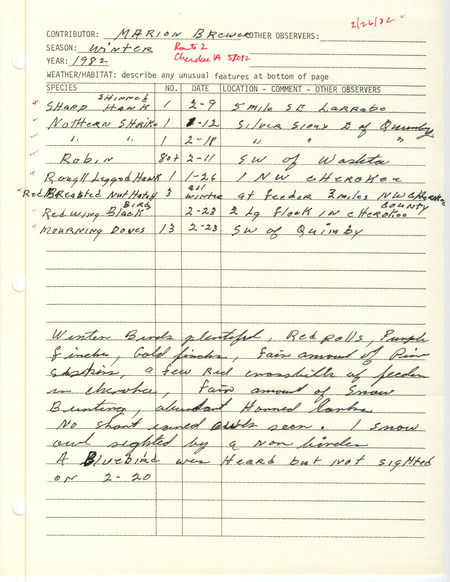 2/26/82
CONTRIBUTOR: MARION BREWER OTHER OBSERVERS:
SEASON: WINTER Route 2
YEAR: 1982 Cherokee IA 51012
WEATHER/HABITAT: describe any unusual features at bottom of page
SPECIES NO. DATE LOCATION - COMMENT - OTHER OBSERVERS
SHARP SHINNED HAWK 1 2-9 5 mile SE Larrabee
Nothern Shrike 1 2-12 Silver Sioux E of Quimby
" " 1 2-18 " " "
Robin 80+ 2-11 SW of Washta
Rough Legged Hawk 1 1-26 1 NW CHEROKEE
Red Breasted Nut Hatch 3 all winter at feeder 3 miles NW CHEROKEE COUNTY
Redwing Black BIRD 2-23 2 Lg flock IN CHEROKEE
MOURNING DOVES 13 2-23 SW of Quimby
Winter Birds plentiful, Red Polls, Purple
finches, Gold finches, fair amount of Pine
Siskins, a few Red crossbills at feeder
in Cherokee, fair amount of Snow
Bunting, abundant Horned Larks
No short eared owls seen. 1 snow
owl sighted by a non birder
A Bluebird was Heard but not sighted
ON 2-20